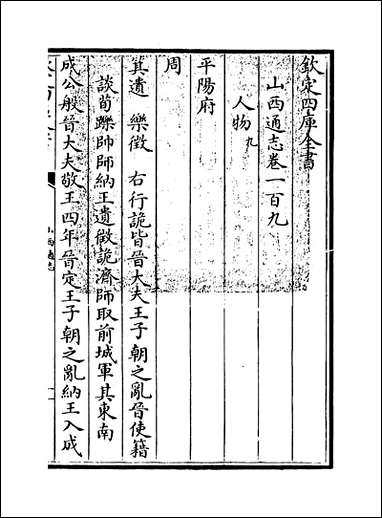 欽定四庫全書
山西通志卷一百九
人物九
平陽府
周
箕遺　樂徵　右行詭皆晉大夫王子朝之亂晉使籍
談荀躒帥師納王遺徵詭濟師取前城軍其東南
成公般晉大夫敬王四年晉定王子朝之亂納王入成